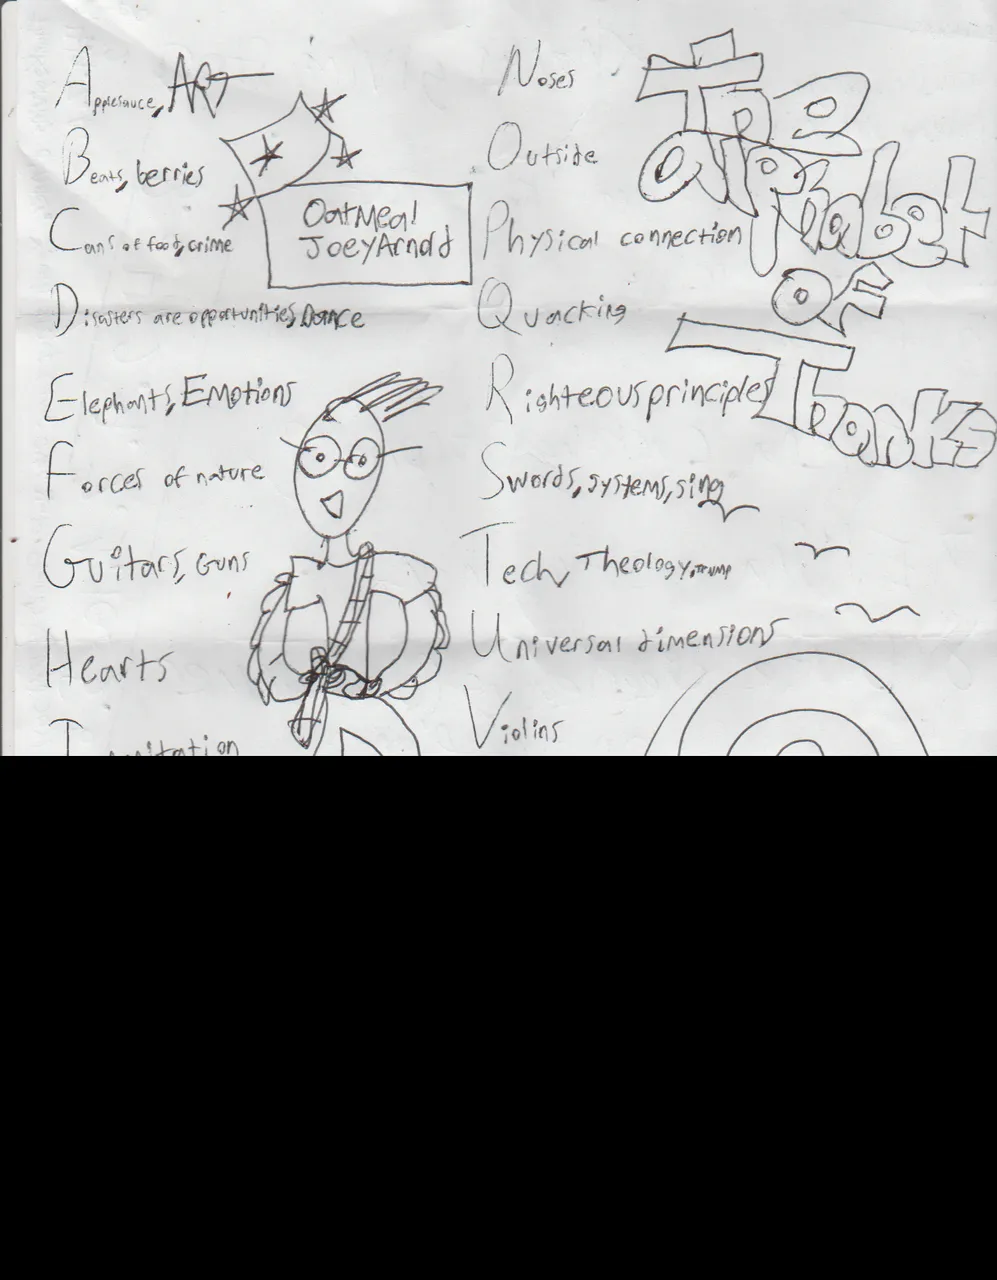 Applesauce, ART
Beats, berries
Cans of food, crime
Disasters are opportunities, Dance
Elephants, Emotions
Forces of nature
Guitars, Guns
Hearts
Oatmeal
JoeyArnold
Noses
Outside
Physical connection
Quacking
Righteous principles
Swords, systems, sing
Tech, Theology, Trump
Universal dimensions
Violins
The
alphabet
OF
Thanks